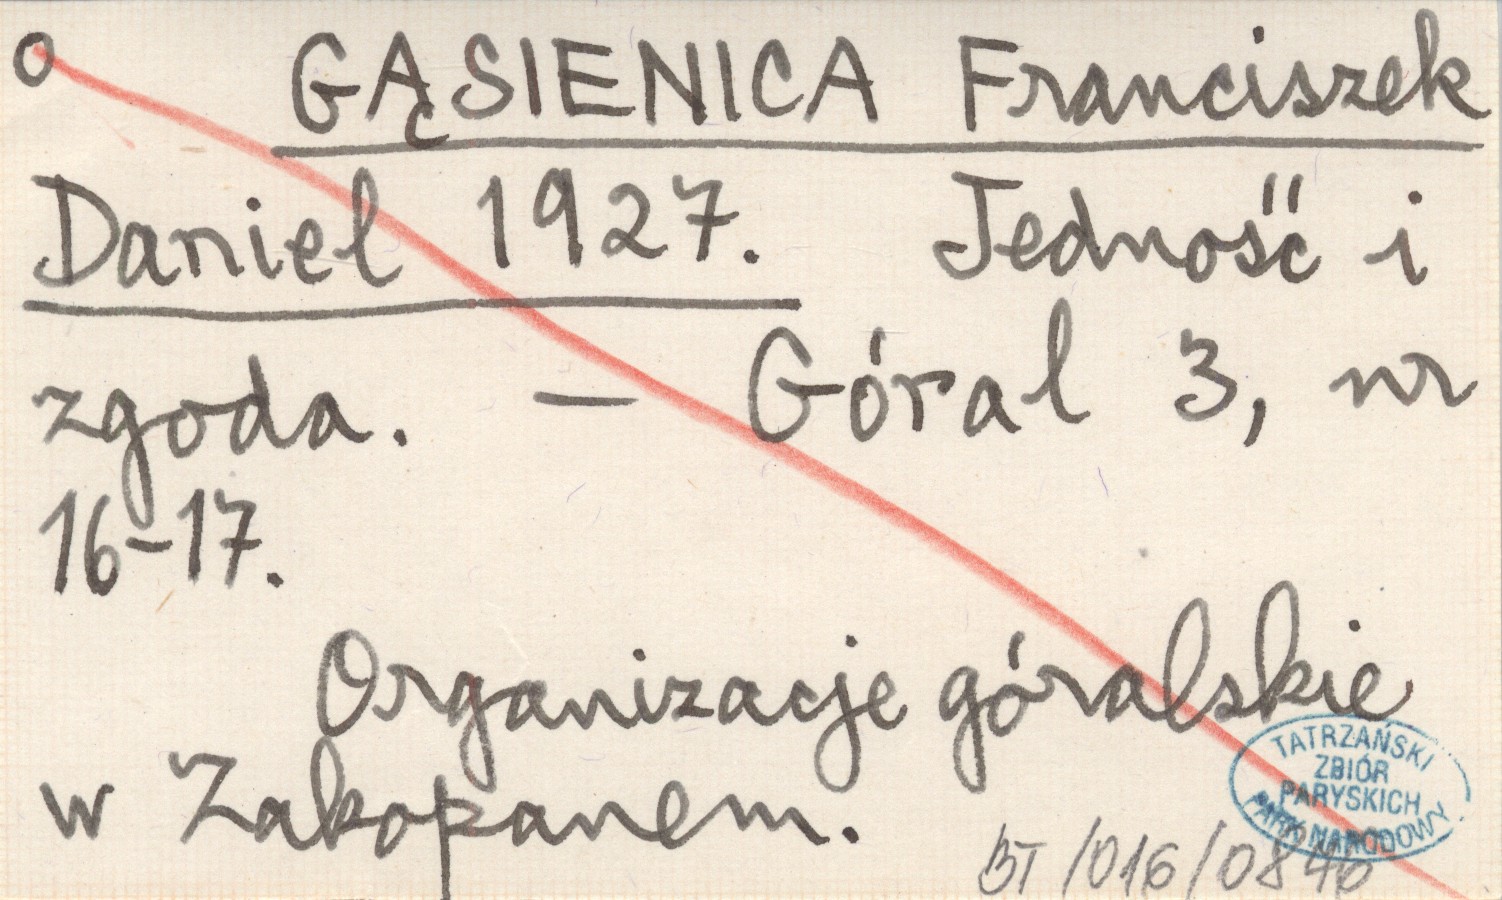 o GĄSIENICA Franciszek
Daniel 1927. Jedność i
zgoda. — Góral 3, nr
16-17.
Organizacje góralskie
w Zakopanem.
TATRZAŃSKI
ZBIÓR
PARYSKICH
PARK NARODOWY
BT/016/0846